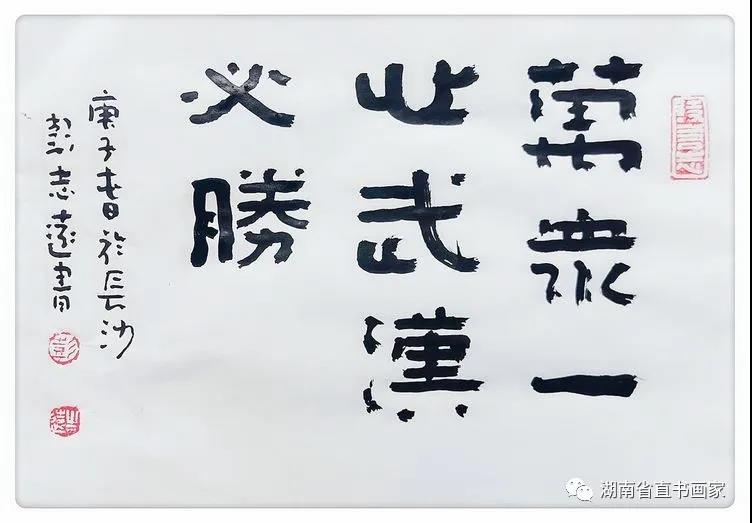 萬衆一
心武漢
必勝
庚子春於長沙
彭志遠書
彭
湖南省直书画家